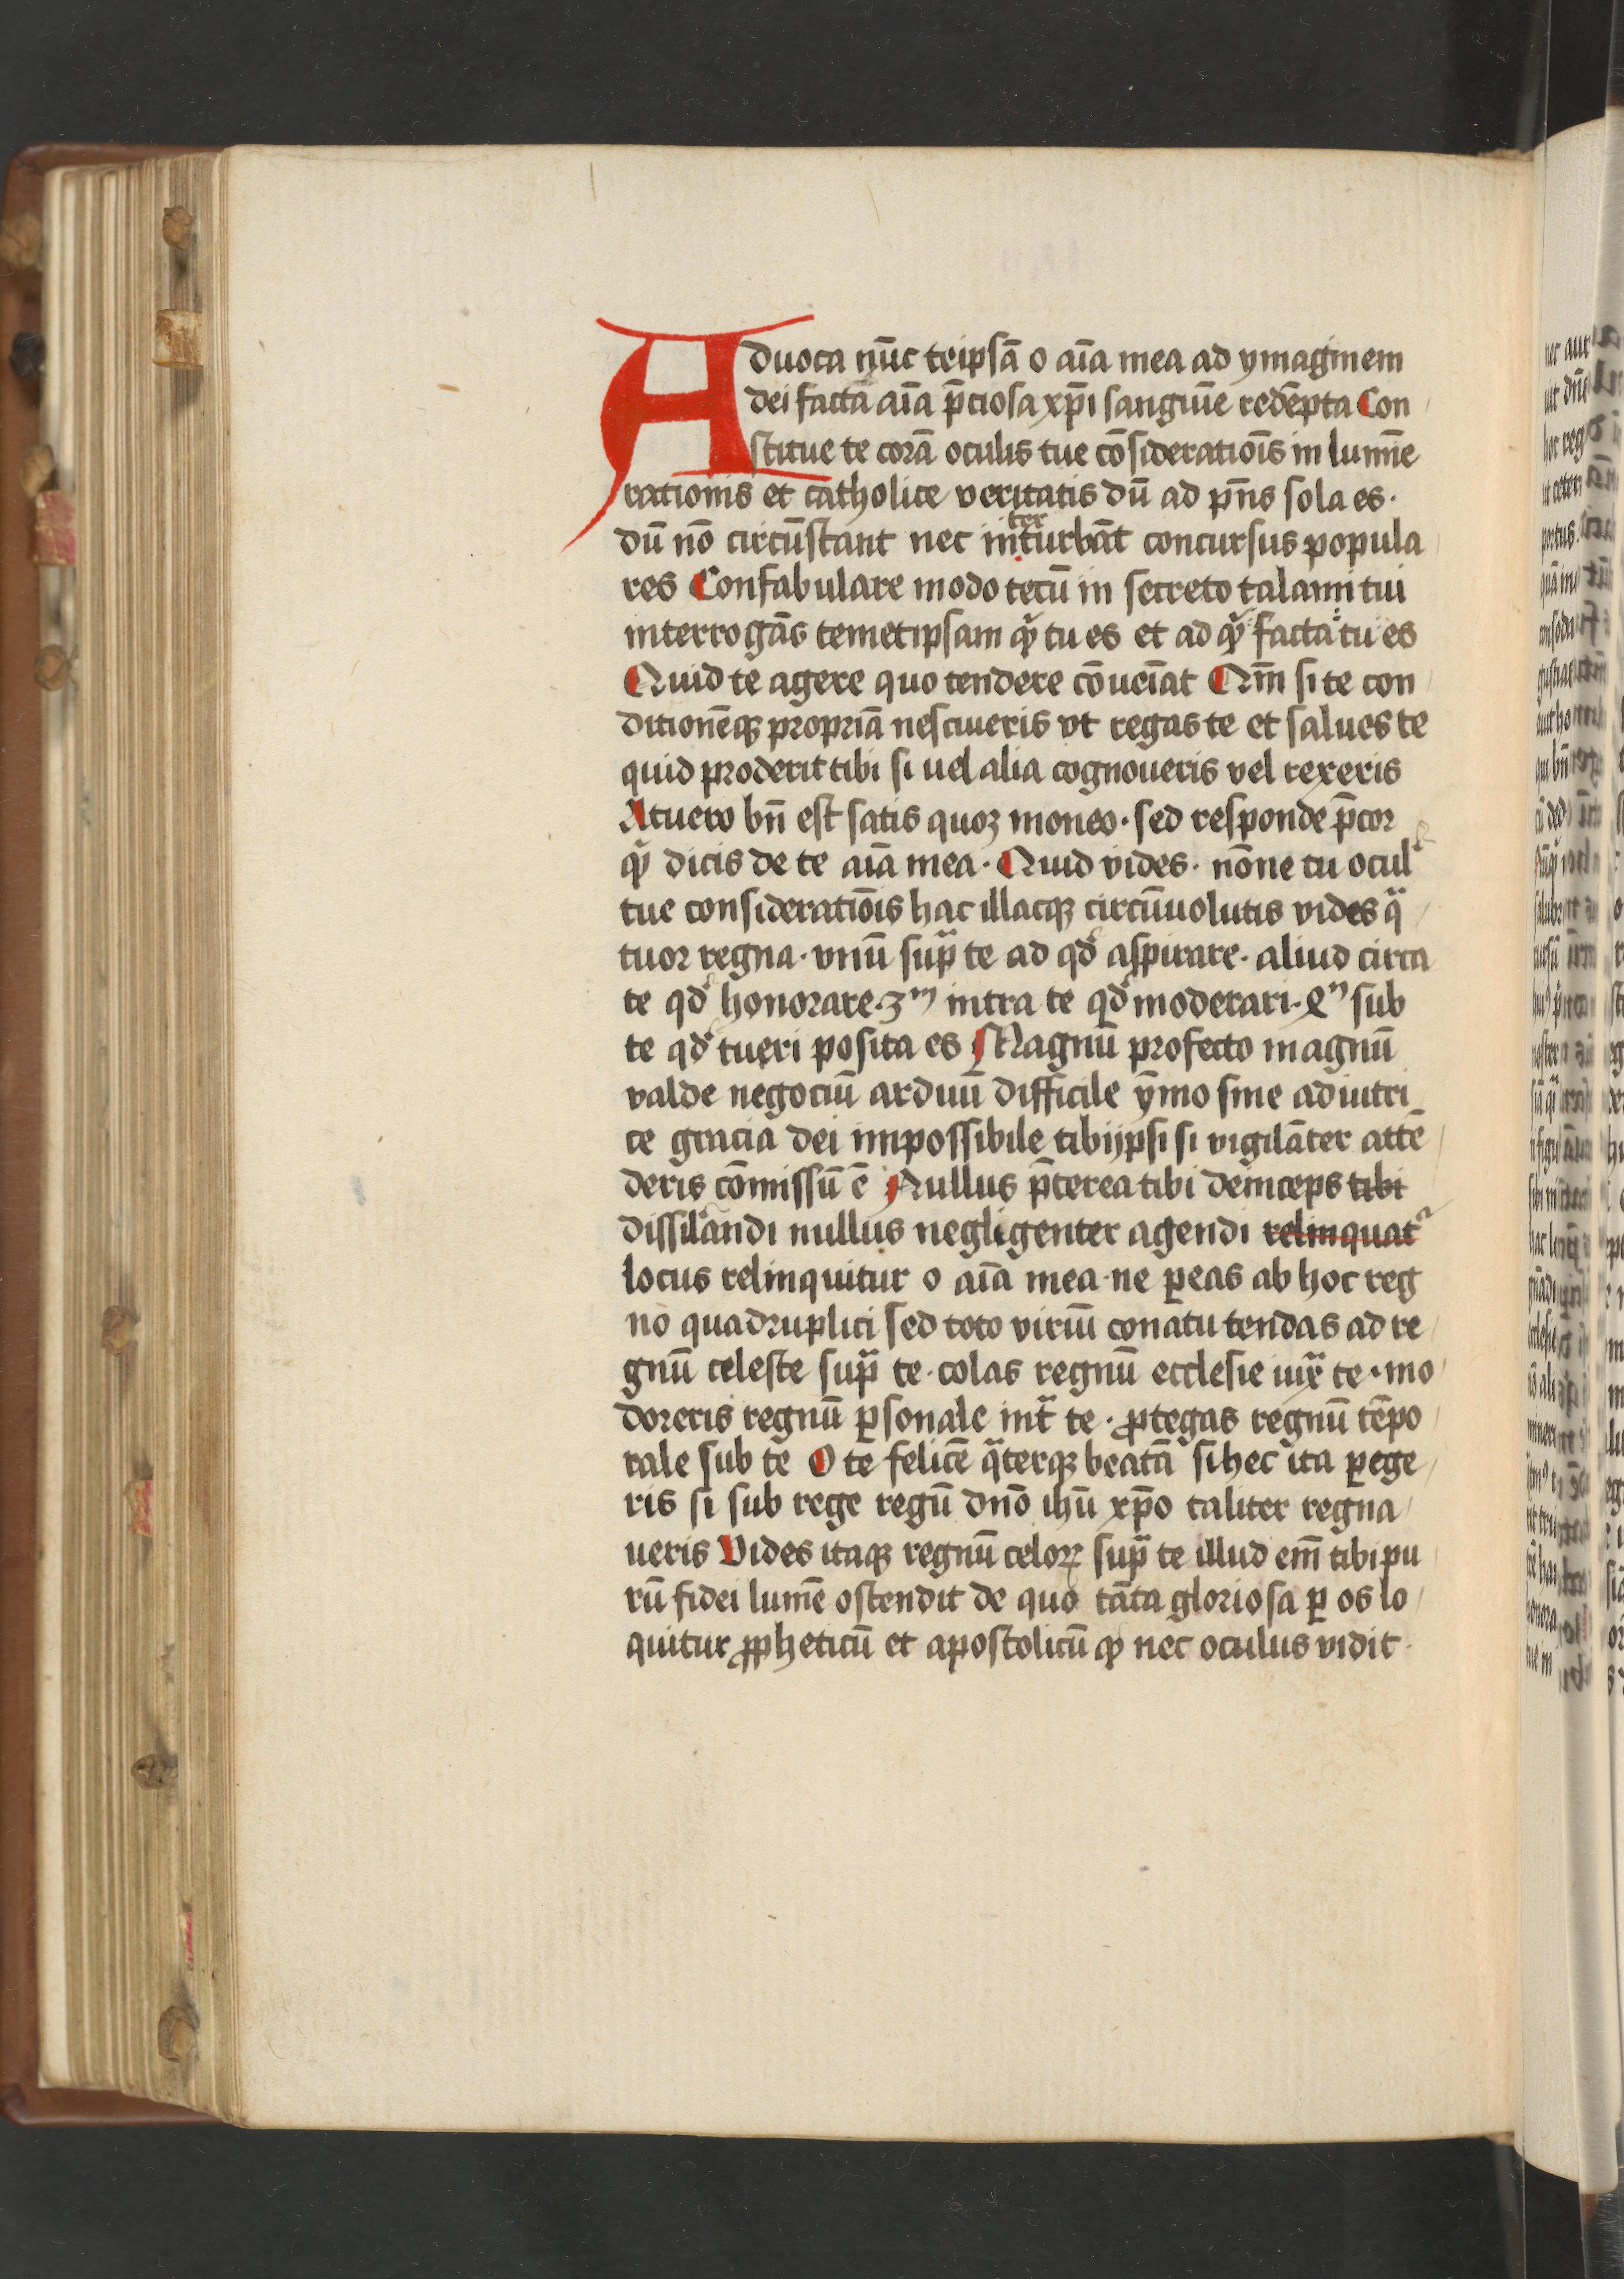 Aduoca nūc teipsā o aīa mea ad ymaginem
dei factā aīa p̄ciosa xp̄i sanguīe redēpta Con
stitue te corā oculis tue cōsideratiōis in lumīe
rationis et catholice veritatis dū ad p̄ns sola es·
dū nō circūstant nec interturbāt concursus popula
res Confabulare modo tecū in secreto talami tui
interrogās temetipsam ꝙ tu es et ad ꝙ facta tu es
Quid te agere quo tendere cōueīat Nā̄ si te con
ditionēqꝫ propriā nesciueris vt regas te et salues te
quid proderit tibi si uel alia cognoueris vel rexeris
Atuero bn̄ est satis quoꝫ moneo· sed responde p̄cor
ꝙ dicis de te aīa mea· Quid vides· nōne tu ocul
tue consideratiōis hac illacqꝫ circūuolutis vides qͣ
tuor regna· vnū supͣ te ad qdͩ aspirare· aliud circa
te qdͩ honorare· 3ᵐ intra te qdͩ moderari· 4ᵐ sub
te qdͩ tueri posita es Magnū profecto magnū
valde negociū arduū difficile ȳmo sine adiutri
ce gracia dei impossibile tibi ipsi si vigilāter attē
deris cōmissū ē Nullus p̄terea tibi deinceps tibi
dissil̄andi nullus negligenter agendi relinquatᷣ
locus relinquitur o aīa mea· ne ꝑeas ab hoc reg
no quadruplici sed toto viriū conatu tendas ad re
gnū celeste supͣ te· colas regnū ecclesie iuxͣ te· mo
doreris regnū ꝑsonale intͣ te· ꝓtegas regnū tēpo
rale sub te O te felicē qͣterqꝫ beatā si hec ita ꝑege
ris si sub rege regū dn̄o ihū xp̄o taliter regna
ueris Vides itaqꝫ regnū celoꝝ supͣ te illud em̄ tibi pu
rū fidei lumē ostendit de quo tāta gloriosa ꝑ os lo
quitur ꝓpheticū et apostolicū ꝙ nec oculus vidit·